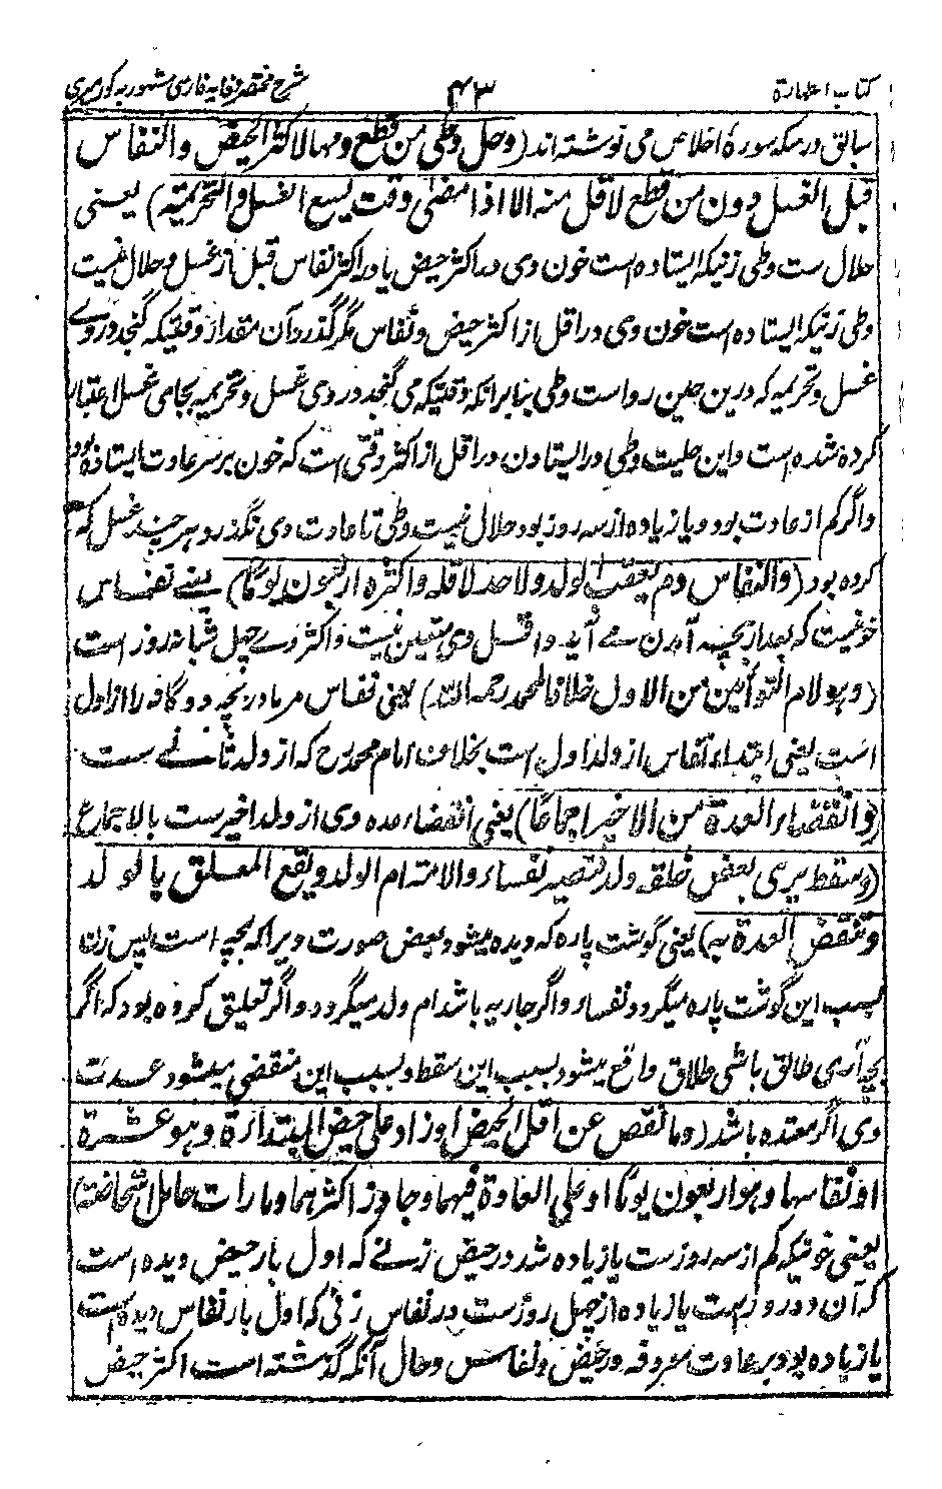 کتاب الطهارة
۴۳
شرح مختصر وقایه فارسی مشهور به کور میری
سابق در سکه سورهٔ اخلاص می نوشته اند (وحل وطی من قطع دمها لاکثر الحیض والنفاس
قبل الغسل دون من قطع لاقل منه الا اذا مضی وقت یسع الغسل والتحریمة) یعنی
حلال ست وطی زنیکه ایستاده است خون وی در اکثر حیض یا در اکثر نفاس قبل از غسل و حلال نیست
وطی زنیکه ایستاده است خون وی در اقل از اکثر حیض و نفاس مگر گذرد آن مقدار وقتیکه گنجد در وے
غسل و تحریمه که درین حین رواست وطی بنابر آنکه وقتیکه می گنجد در وی غسل و تحریمه بجای غسل اعتبار
کرده شده است و این حلیت وطی در ایستادن در اقل از اکثر وقتی است که خون بر سر عادت ایستاده بود
و اگر کم از عادت بود و یا زیاده از سه روز بود حلال نیست وطی تا عادت وی نگذرد هر چند غسل که
کرده بود (والنفاس دم یعقب الولد ولا حد لاقله واکثره اربعون یوما) یعنے نفاس
خونیست که بعد از بچه آمدن مے آید و اقل وی متعین نیست و اکثر وے چهل شبانه روز است
(وهو لام التوأمین من الاول خلافا لمحمد رحمه الله) یعنی نفاس مر مادر بچه دوگانه را از اول
است یعنی ابتداء نفاس از ولد اول است بخلاف امام محمد رح که از ولد ثانے ست
(وانقضاء العدة من الاخیر اجماعا) یعنی انقضاء عده وی از ولد اخیر ست بالاجماع
(وسقط یری بعض خلقه ولد فتصیر نفساء والامة ام الولد ویقع المعلق بالولد
وتنقض العدة به) یعنی گوشت پاره که دیده میشود بعض صورت ویرا که بچه است پس زن
بسبب این گوشت پاره میگردد نفساء و اگر جاریه باشد ام ولد میگردد و اگر تعلیق کرده بود که اگر
بچه آری طالق باشی طلاق واقع میشود بسبب این سقط و بسبب این منقضی میشود عدت
وی اگر معتده باشد (وما نقص عن اقل الحیض او زاد علی حیض المبتدأة وهو عشرة
او نفاسها وهو اربعون یوما او علی العادة فیهما وجاوز اکثرهما وما رأت حامل استحاضة)
یعنی خونیکه کم از سه روزست یا زیاده شد در حیض زنے که اول بار حیض دیده است
که آن ده روز است یا زیاده از چهل روزست در نفاس زنی که اول بار نفاس دیده است
یا زیاده بود بر عادت معروفه در حیض و نفاس و حال آنکه گذشته است اکثر حیض